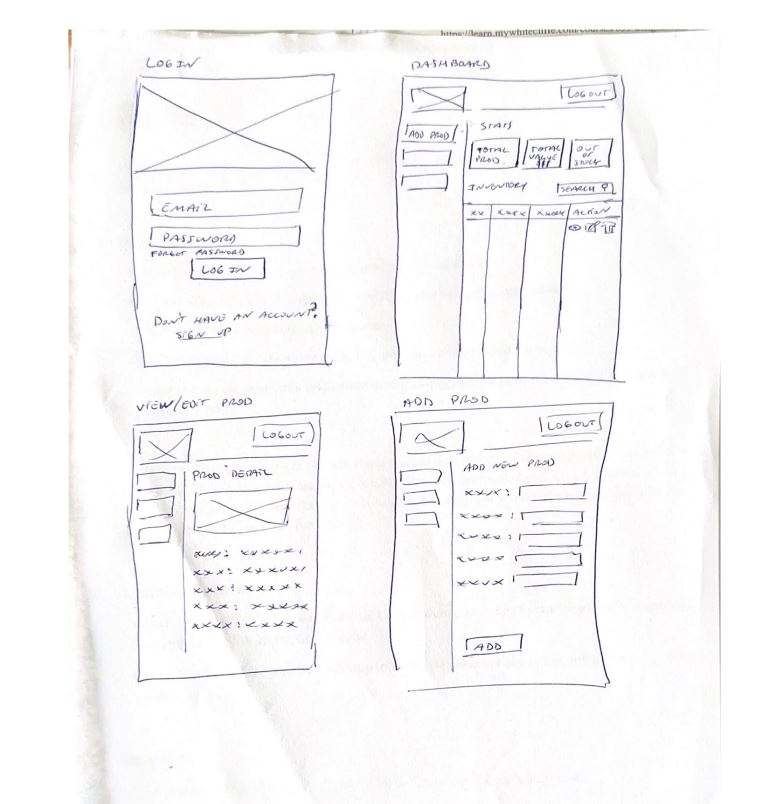 https://learn.mywhitecliffe.com/courses
LOGIN
EMAIL
PASSWORD
FORGOT PASSWORD
LOG IN
DON'T HAVE AN ACCOUNT?
SIGN UP
DASHBOARD
LOGOUT
ADD PROD
STATS
TOTAL
PROD.
TOTAL
VALUE
OUT
OF
STOCK
INVENTORY
SEARCH
XX XXXX XXXXX ACTION
VIEW/EDIT PROD
LOGOUT
PROD DETAIL
xxx: xxxxx
xxx: xxxxxx
xxx: xxxxx
xxx: xxxxx
xxxx: xxxx
ADD PROD
LOGOUT
ADD NEW PROD
xxxx:
xxxx:
xxxx:
xxxx
xxxx
ADD